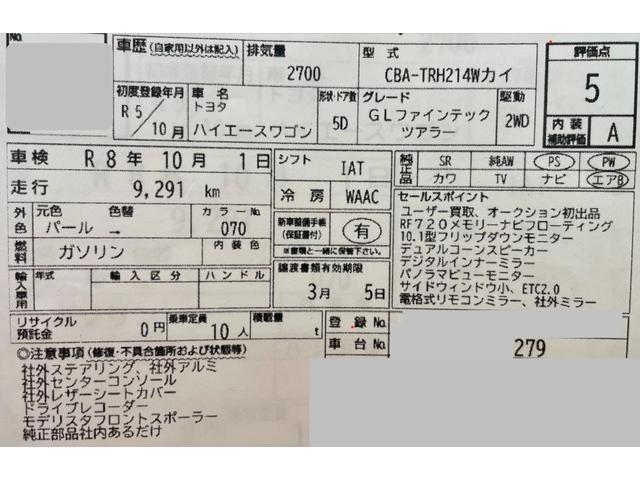 No.
車歴 (自家用以外は記入)
排気量
2700
型式
CBA-TRH214Wカイ
評価点
5
内装
補助評価
A
初度登録年月
R5/10月
車名
トヨタ
ハイエースワゴン
形状・ドア数
5D
グレード
GLファインテック
ツアラー
駆動
2WD
車検 R8年10月1日
シフト
IAT
走行 9,291 km
冷房
WAAC
純正品
SR 純AW PS PW
カワ TV ナビ エアB
外色
元色 色替
パール →
カラーNo.
070
内装色
燃料
ガソリン
新車整備手帳
(保証書付)
有
※書類と一緒に保管下さい。
輸入車用
年式 輸入区分 ハンドル
譲渡書類有効期限
3月 5日
セールスポイント
ユーザー買取、オークション初出品
RF720メモリーナビフローティング
10.1型フリップダウンモニター
デュアルコーンスピーカー
デジタルインナーミラー
パノラマビューモニター
サイドウィンドウ小、ETC2.0
電格式リモコンミラー、社外ミラー
リサイクル
預託金
0円
乗車定員
10人
積載量
t
登録No.
車台No.
279
◎注意事項(修復・不具合箇所および状態等)
社外ステアリング、社外アルミ
社外センターコンソール
社外レザーシートカバー
ドライブレコーダー
モデリスタフロントスポーラー
純正部品社内あるだけ